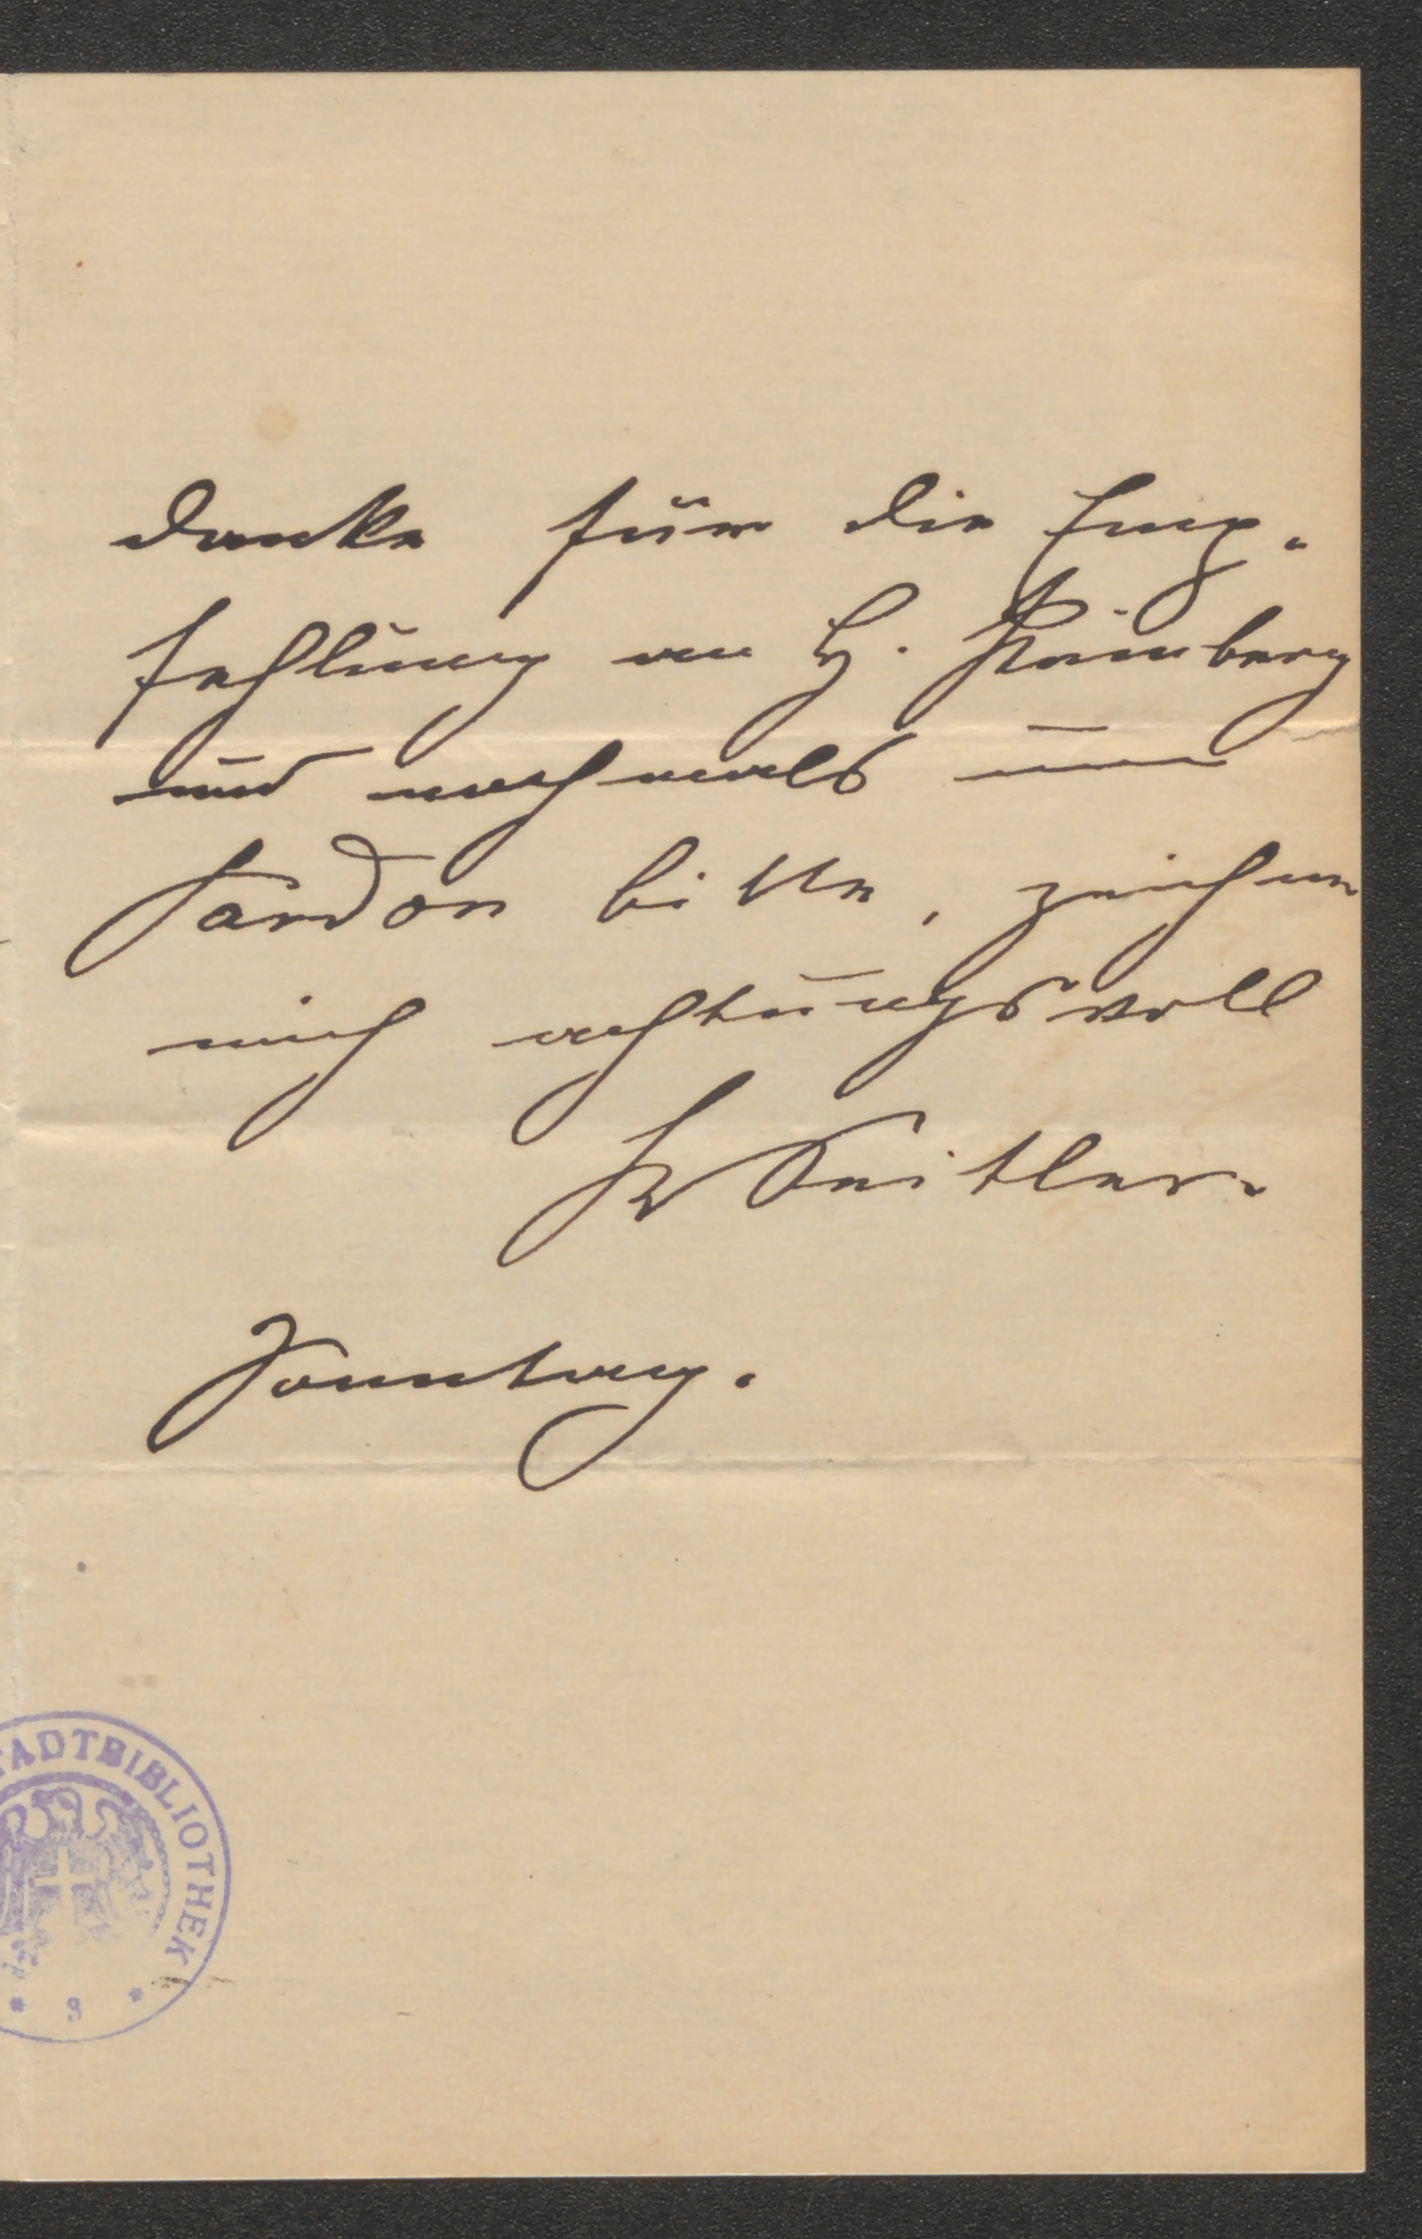 danke für die Emp-
fehlung an H. Steinberg
und nochmals um
Pardon bitte, zeichne
mich achtungsvoll
Seitler.
Sonntag.
STADTBIBLIOTHEK
* S *